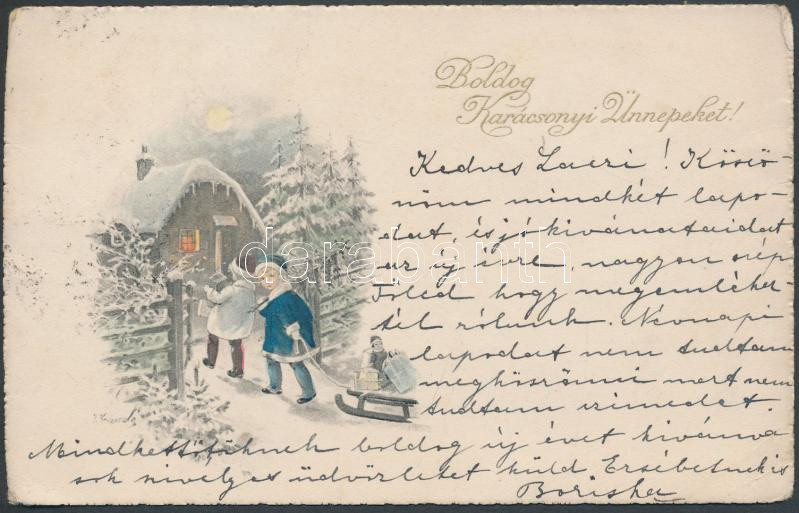 Boldog
Karácsonyi Ünnepeket!
Kedves Laczi! Köszö-
nöm mindkét lapo-
dat, és jó kivánataidat
az új évre, nagyon szép
Tőled hogy megemléke-
tél rólunk. Névnapi
lapodat nem tudtam
megköszönni mert nem
tudtam czimedet.
Mindkettőtöknek boldog új évet kivánva
sok szivélyes üdvözletet küld Erzsébetnek is
Boriska
darabanth